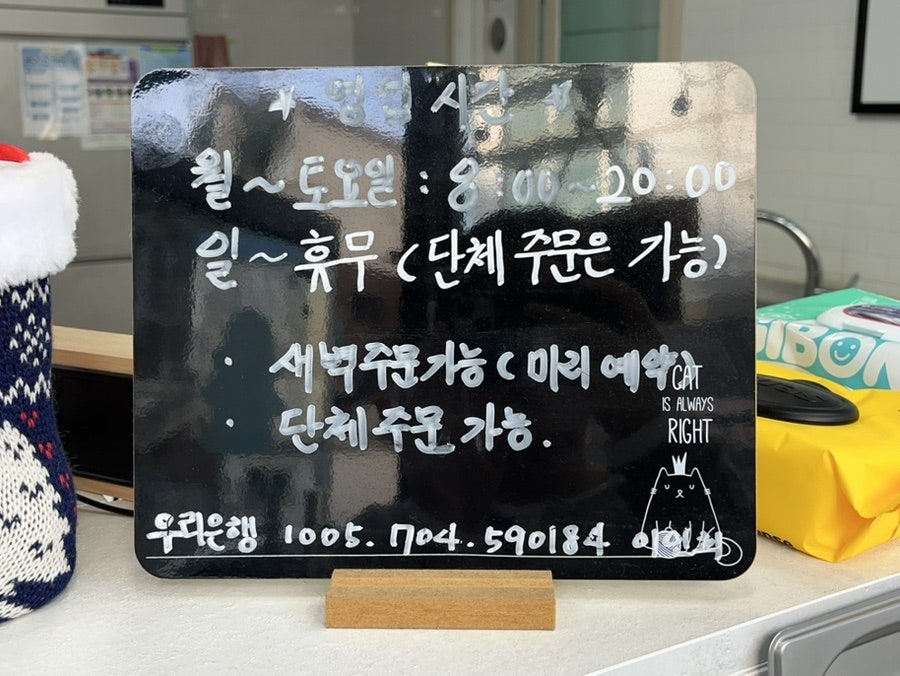 ★ 영업시간 ★
월 ~ 토요일 : 8:00 ~ 20:00
일 ~ 휴무 (단체 주문은 가능)
· 새벽주문가능 (미리 예약)
· 단체주문 가능.
CAT
IS ALWAYS
RIGHT
우리은행 1005. 704. 590184